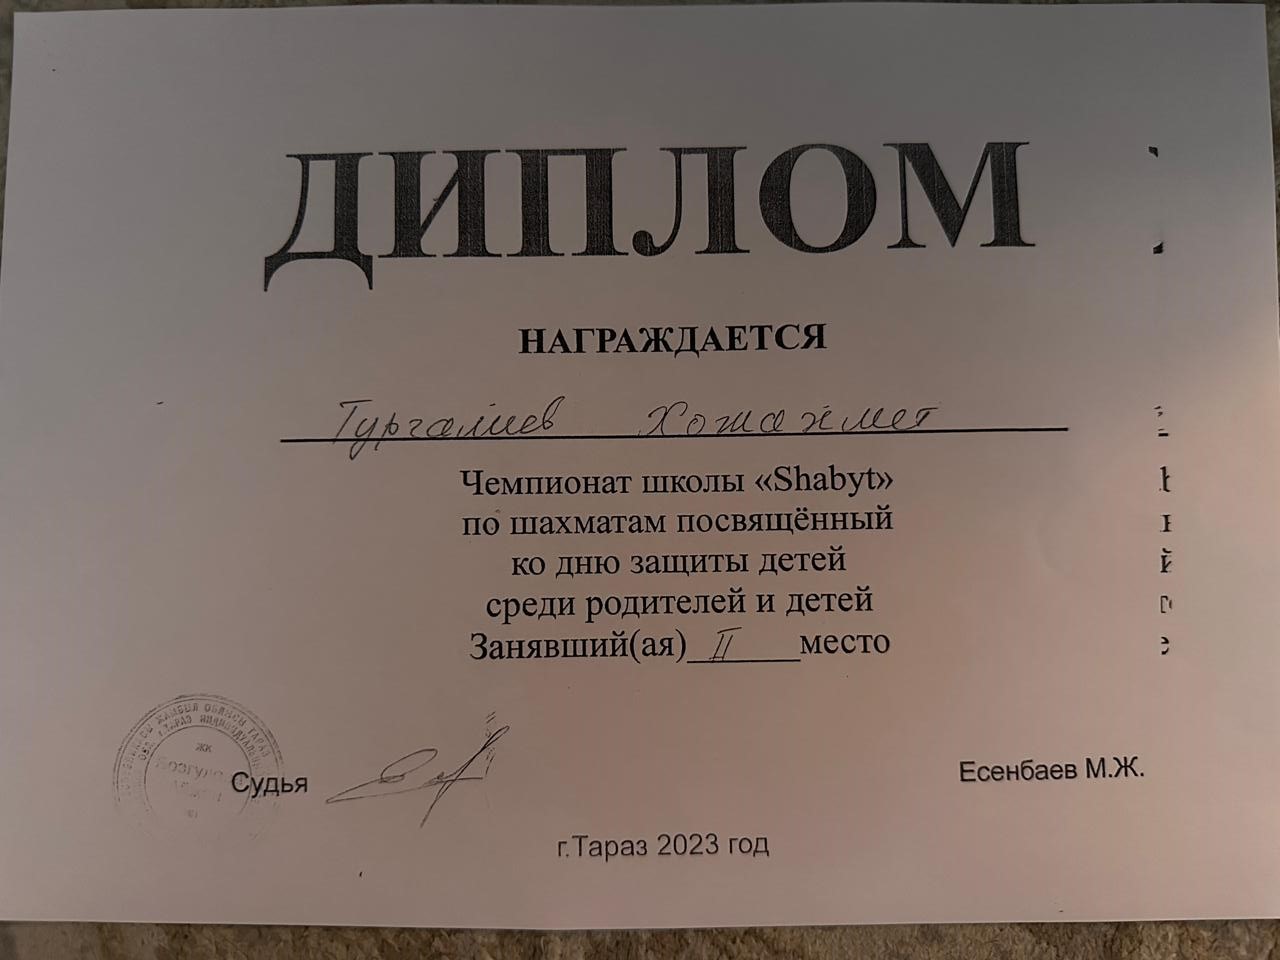 ДИПЛОМ
НАГРАЖДАЕТСЯ
Тургалиев Хожахмет
Чемпионат школы «Shabyt»
по шахматам посвящённый
ко дню защиты детей
среди родителей и детей
Занявший(ая) II место
ЖАМБЫЛ ОБЛЫСЫ ТАРАЗ
г.ТАРАЗ
ЖК
Судья
Есенбаев М.Ж.
г.Тараз 2023 год